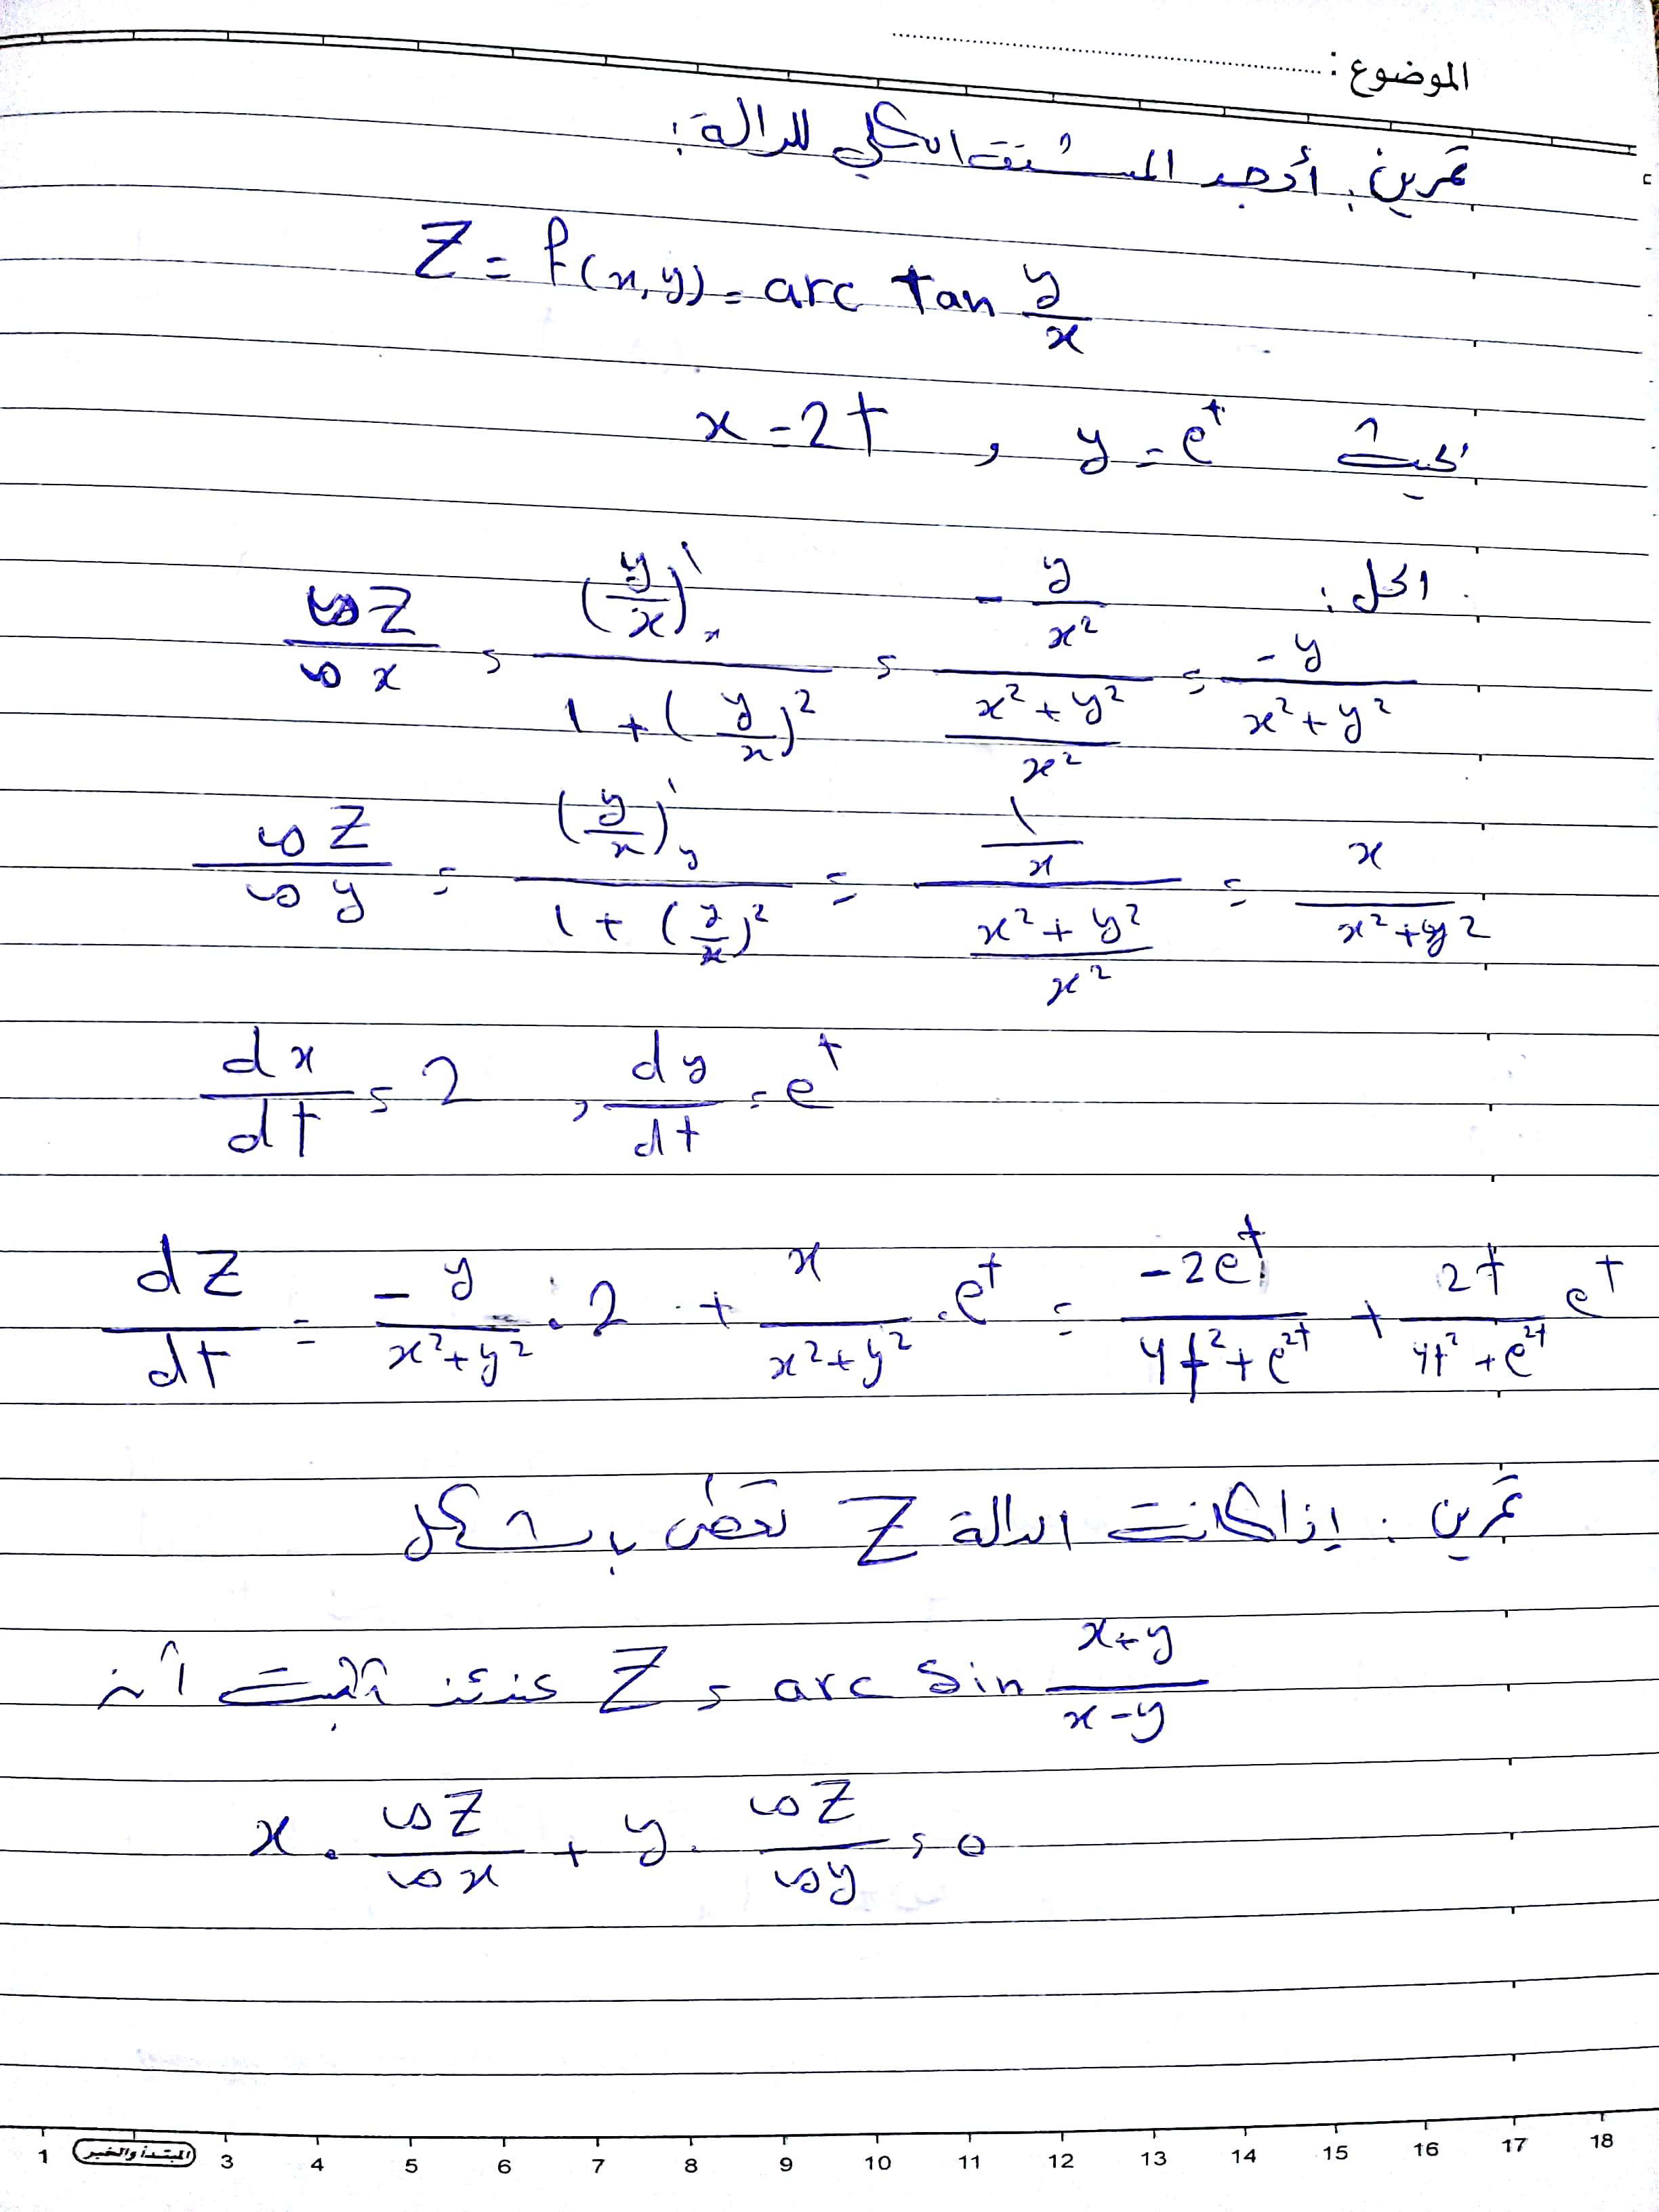 الموضوع :
تمرين: أوجد المشتق الكلي للدالة:
Z = f(x,y) = arc tan y/x
بحيث x = 2t , y = e^t
الحل:
∂Z/∂x = (y/x)'x / (1 + (y/x)^2) = (- y/x^2) / ((x^2 + y^2)/x^2) = -y/(x^2 + y^2)
∂Z/∂y = (y/x)'y / (1 + (y/x)^2) = (1/x) / ((x^2 + y^2)/x^2) = x/(x^2 + y^2)
dx/dt = 2 , dy/dt = e^t
dZ/dt = - y/(x^2 + y^2) . 2 + x/(x^2 + y^2) . e^t = -2e^t/(4t^2 + e^2t) + 2t/(4t^2 + e^2t) e^t
تمرين : إذا كانت الدالة Z تعطى بالشكل
Z = arc Sin (x+y)/(x-y) عندئذ أثبت أنه
x . ∂Z/∂x + y . ∂Z/∂y = 0
1 المبتدأ والخبر 3 4 5 6 7 8 9 10 11 12 13 14 15 16 17 18